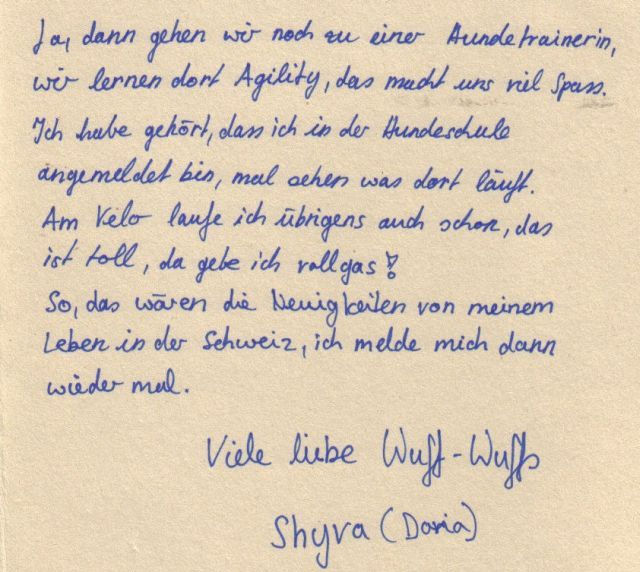 Ja, dann gehen wir noch zu einer Hundetrainerin,
wir lernen dort Agility, das macht uns viel Spass.
Ich habe gehört, dass ich in der Hundeschule
angemeldet bin, mal sehen was dort läuft.
Am Velo laufe ich übrigens auch schon, das
ist toll, da gebe ich vollgas!
So, das wären die Neuigkeiten von meinem
Leben in der Schweiz, ich melde mich dann
wieder mal.
Viele liebe Wuff-Wuffs
Shyra (Doria)